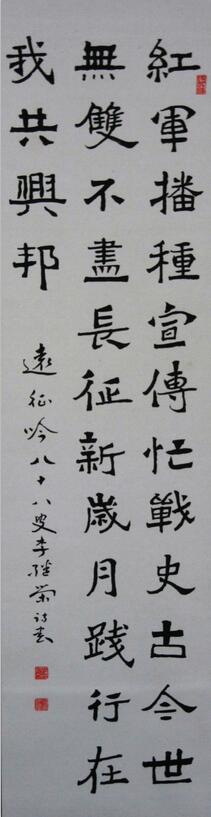 紅軍播種宣傳忙戰史古今世
無雙不盡長征新歲月踐行在
我共興邦
遠征吟八十八叟李繼榮詩書